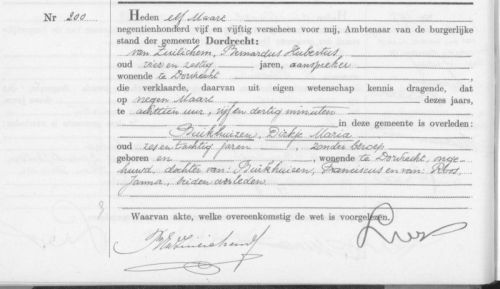 Nr 200
Heden elf Maart
negentienhonderd vijf en vijftig verscheen voor mij, Ambtenaar van de burgerlijke
stand der gemeente Dordrecht:
van Zuilichem, Bernardus Hubertus,
oud vier en zestig jaren, aanspreker
wonende te Dordrecht
die verklaarde, daarvan uit eigen wetenschap kennis dragende, dat
op negen Maart dezes jaars,
te achttien uur, vijf en dertig minuten
in deze gemeente is overleden:
Buikhuizen, Dirkje Maria
oud zes en tachtig jaren, zonder beroep
geboren en , wonende te Dordrecht, onge-
huwd, dochter van: Buikhuisen, Franciscus en van: Roos,
Janna, beiden overleden
Waarvan akte, welke overeenkomstig de wet is voorgelezen.